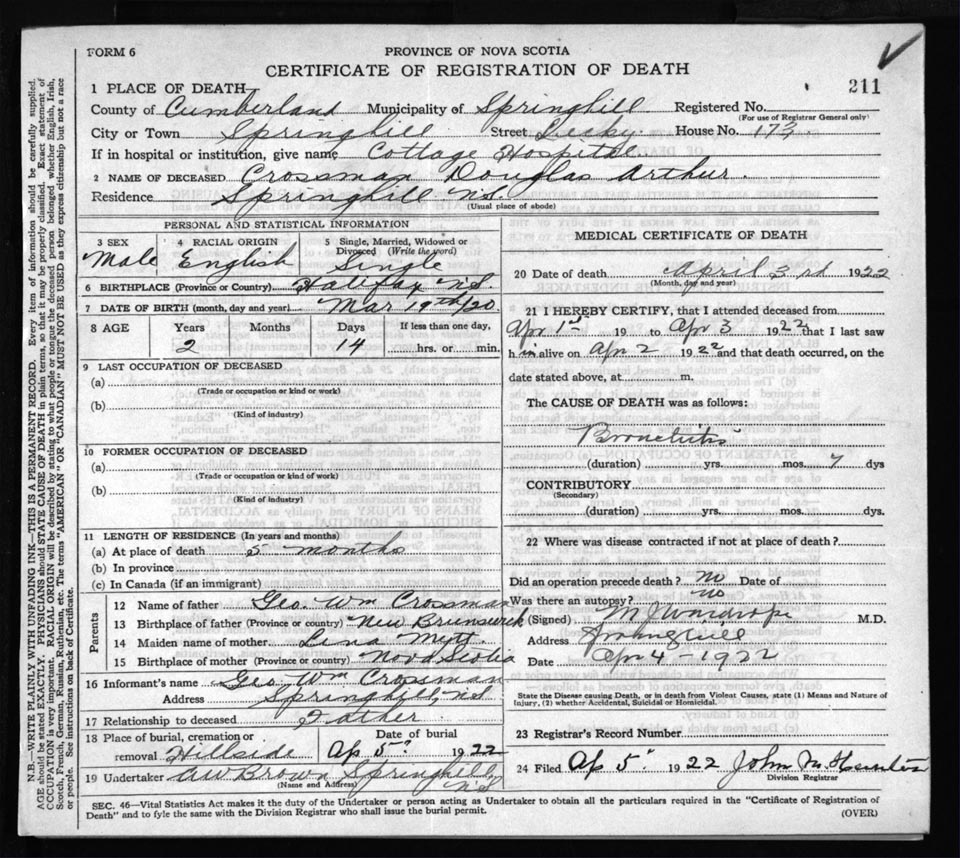 FORM 6
PROVINCE OF NOVA SCOTIA
CERTIFICATE OF REGISTRATION OF DEATH
211
1 PLACE OF DEATH
County of Cumberland Municipality of Springhill Registered No.
(For use of Registrar General only)
City or Town Springhill Street House No. 173
If in hospital or institution, give name Cottage Hospital.
2 NAME OF DECEASED Crossman Douglas Arthur.
Residence Springhill N.S.
(Usual place of abode)
PERSONAL AND STATISTICAL INFORMATION
3 SEX 4 RACIAL ORIGIN 5 Single, Married, Widowed or Divorced (Write the word)
Male English Single
6 BIRTHPLACE (Province or Country) Halifax N.S.
7 DATE OF BIRTH (month, day and year) Mar 19th/20.
8 AGE Years Months Days If less than one day,
2 14 hrs. or min.
9 LAST OCCUPATION OF DECEASED
(a)
(Trade or occupation or kind or work)
(b)
(Kind of industry)
10 FORMER OCCUPATION OF DECEASED
(a)
(Trade or occupation or kind of work)
(b)
(Kind of industry)
11 LENGTH OF RESIDENCE (In years and months)
(a) At place of death 5 months
(b) In province
(c) In Canada (if an immigrant)
Parents
12 Name of father Geo. Wm Crossman
13 Birthplace of father (Province or country) New Brunswick
14 Maiden name of mother Lena
15 Birthplace of mother (Province or country) Nova Scotia
16 Informant's name Geo. Wm Crossman
Address Springhill, N.S.
17 Relationship to deceased Father
18 Place of burial, cremation or Date of burial
removal Hillside Ap 5" 1922
19 Undertaker AW Brown Springhill N.S.
(Name and Address)
MEDICAL CERTIFICATE OF DEATH
20 Date of death April 3rd 1922
(Month, day and year)
21 I HEREBY CERTIFY, that I attended deceased from
Apr 1st 19 to Apr 3 1922 that I last saw
him alive on Apr 2 1922 and that death occurred, on the
date stated above, at m.
The CAUSE OF DEATH was as follows:
Bronchitis
(duration) yrs. mos. 7 dys
CONTRIBUTORY
(Secondary)
(duration) yrs. mos. dys.
22 Where was disease contracted if not at place of death?
Did an operation precede death? no Date of
Was there an autopsy? no
(Signed) M.D.
Address Springhill
Date Apr 4 - 1922
State the Disease causing Death, or in death from Violent Causes, state (1) Means and Nature of
Injury, (2) whether Accidental, Suicidal or Homicidal.
23 Registrar's Record Number
24 Filed Ap 5" 1922 John M
Division Registrar
SEC. 46—Vital Statistics Act makes it the duty of the Undertaker or person acting as Undertaker to obtain all the particulars required in the "Certificate of Registration of
Death" and to fyle the same with the Division Registrar who shall issue the burial permit.
(OVER)
N.B.—WRITE PLAINLY WITH UNFADING INK—THIS IS A PERMANENT RECORD. Every item of information should be carefully supplied.
AGE should be stated EXACTLY. PHYSICIANS should STATE CAUSE OF DEATH in plain terms, so that it may be properly classified. Exact statement of
OCCUPATION is very important. RACIAL ORIGIN will be described by stating to what people or tongue the deceased person belonged whether English, Irish,
Scotch, French, German, Russian, Ruthenian, etc. The terms "AMERICAN" OR "CANADIAN" MUST NOT BE USED as they express citizenship but not a race
or people. See instructions on back of Certificate.